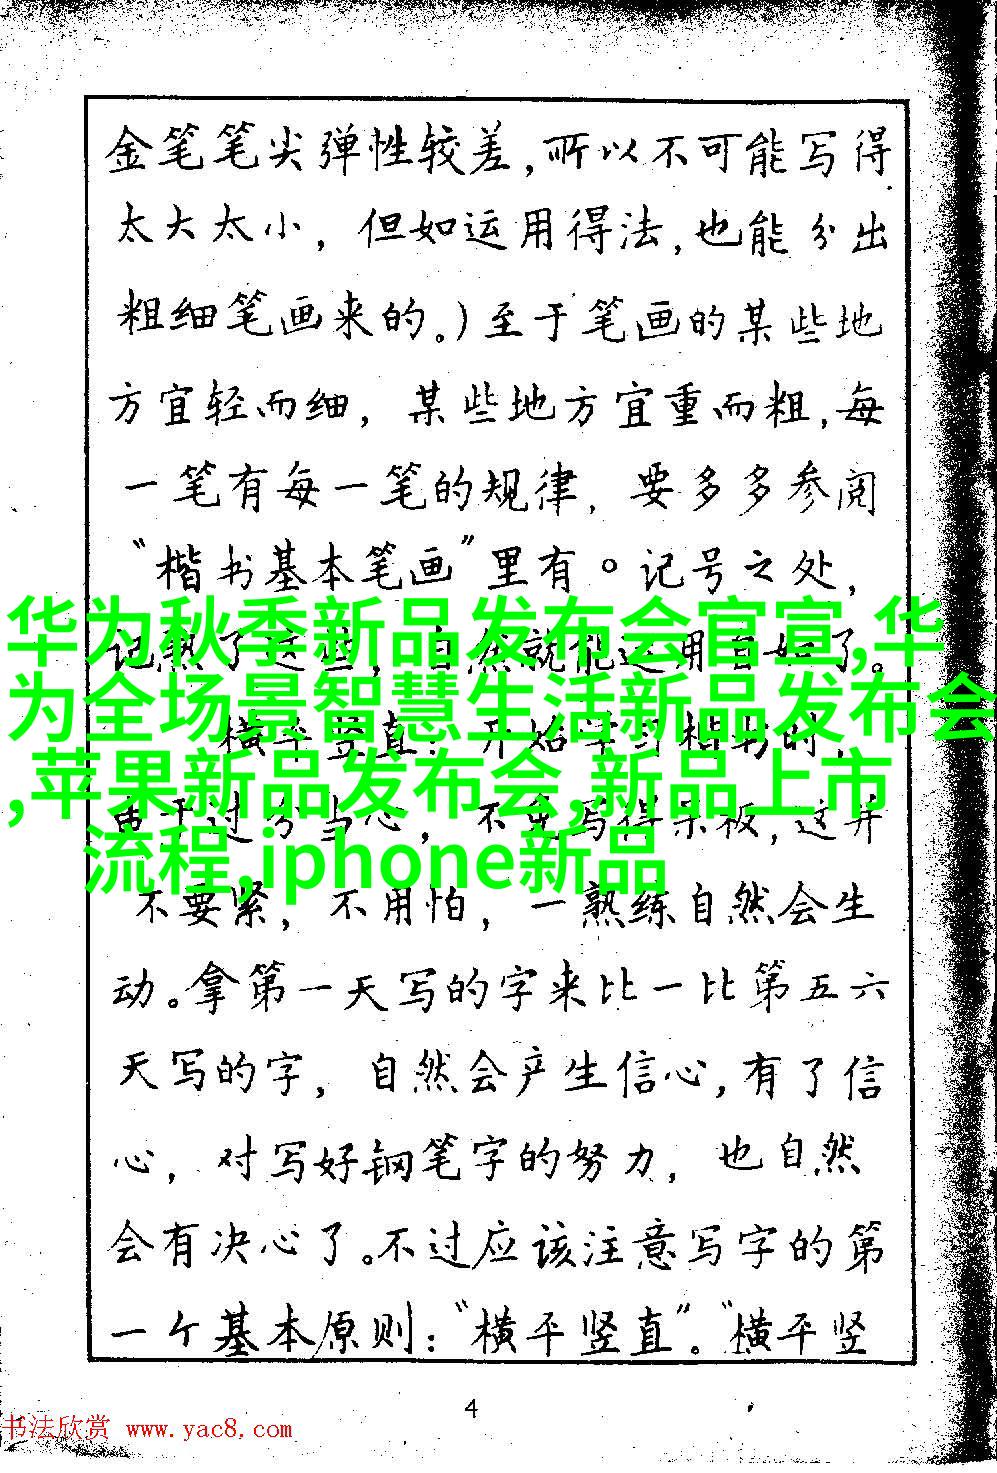 金笔笔尖弹性较差,所以不可能写得
太大太小，但如运用得法,也能分出
粗细笔画来的。)至于笔画的某些地
方宜轻而细，某些地方宜重而粗,每
一笔有每一笔的规律，要多多参阅
“楷书基本笔画”里有。记号之处,
记熟了这些，自然就能运用自如了。
华为秋季新品发布会官宣,华
为全场景智慧生活新品发布会
,苹果新品发布会,新品上市
流程,iphone新品
横平竖直：开始学习楷书时，
由于过分当心，不免写得呆板,这并
不要紧，不用怕，一熟练自然会生
动。拿第一天写的字来比一比第五六
天写的字，自然会产生信心,有了信
心，对写好钢笔字的努力，也自然
会有决心了。不过应该注意写字的第
一个基本原则：“横平竖直”。“横平竖
4
书法欣赏 www.yac8.com